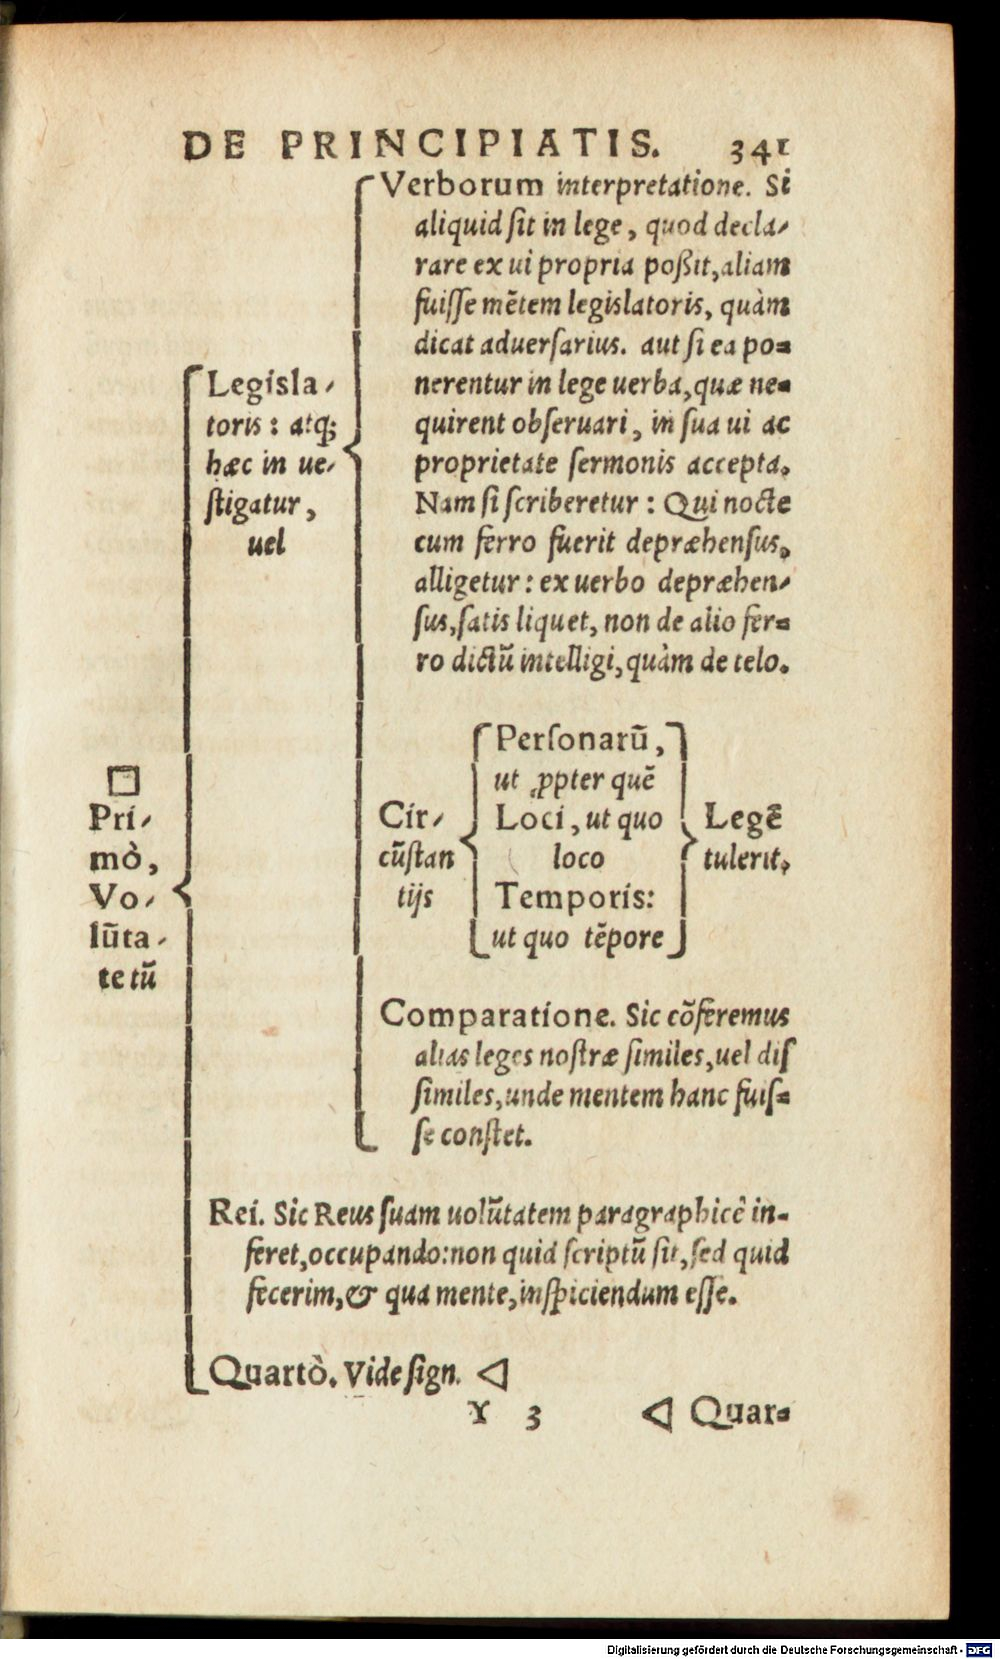 DE PRINCIPIATIS. 341
Verborum interpretatione. Si
aliquid ſit in lege, quod decla-
rare ex ui propria poßit, aliam
fuiſſe mētem legislatoris, quàm
dicat aduerſarius. aut ſi ea po-
nerentur in lege uerba, quæ ne-
quirent obſeruari, in ſua ui ac
proprietate ſermonis accepta.
Nam ſi ſcriberetur: Qui nocte
cum ferro fuerit depræhenſus,
alligetur: ex uerbo depræhen-
ſus, ſatis liquet, non de alio fer-
ro dictū intelligi, quàm de telo.
Legisla-
toris: atq;
hæc in ue-
ſtigatur,
uel
□
Pri-
mò,
Vo-
lūta-
te tū
Cir-
cūſtan
tijs
Perſonarū,
ut ꝓpter quē
Loci, ut quo
loco
Temporis:
ut quo tēpore
Legē
tulerit.
Comparatione. Sic cōferemus
alias leges noſtræ ſimiles, uel diſ
ſimiles, unde mentem hanc fuiſ-
ſe conſtet.
Rei. Sic Reus ſuam uolūtatem paragraphicè in-
feret, occupando: non quid ſcriptū ſit, ſed quid
fecerim, & qua mente, inſpiciendum eſſe.
Quartò. Vide ſign. ◁
Y 3 ◁ Quar-
Digitalisierung gefördert durch die Deutsche Forschungsgemeinschaft - DFG